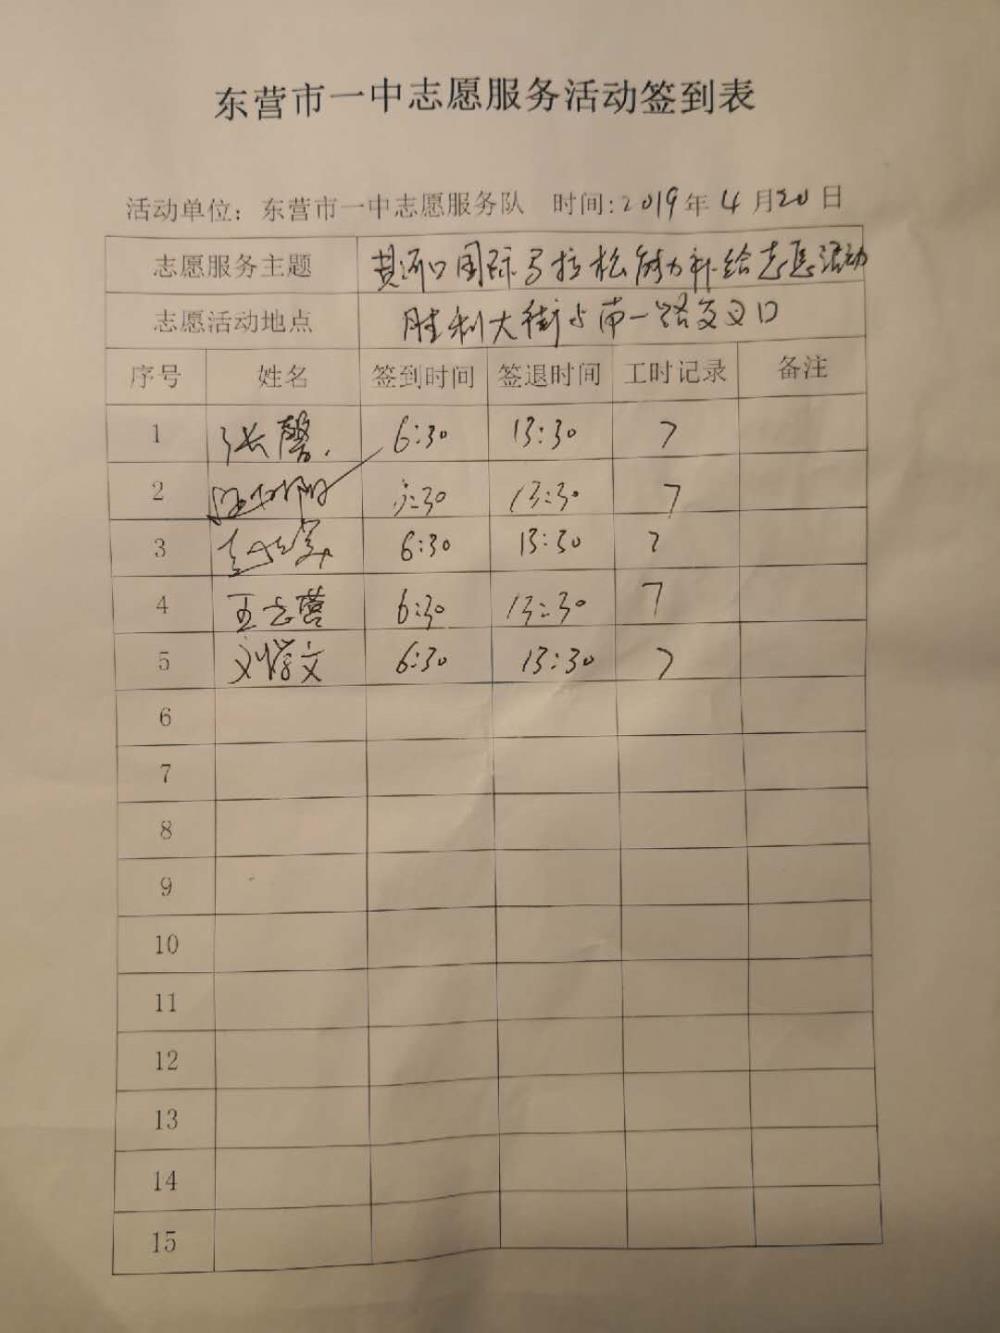 东营市一中志愿服务活动签到表
活动单位：东营市一中志愿服务队 时间:2019年4月20日
志愿服务主题 黄河口国际马拉松能力补给志愿活动
志愿活动地点 胜利大街与南一路交叉口
序号 姓名 签到时间 签退时间 工时记录 备注
1 张馨 6:30 13:30 7
2 :30 13:30 7
3 6:30 13:30 7
4 王志营 6:30 13:30 7
5 刘学文 6:30 13:30 7
6
7
8
9
10
11
12
13
14
15